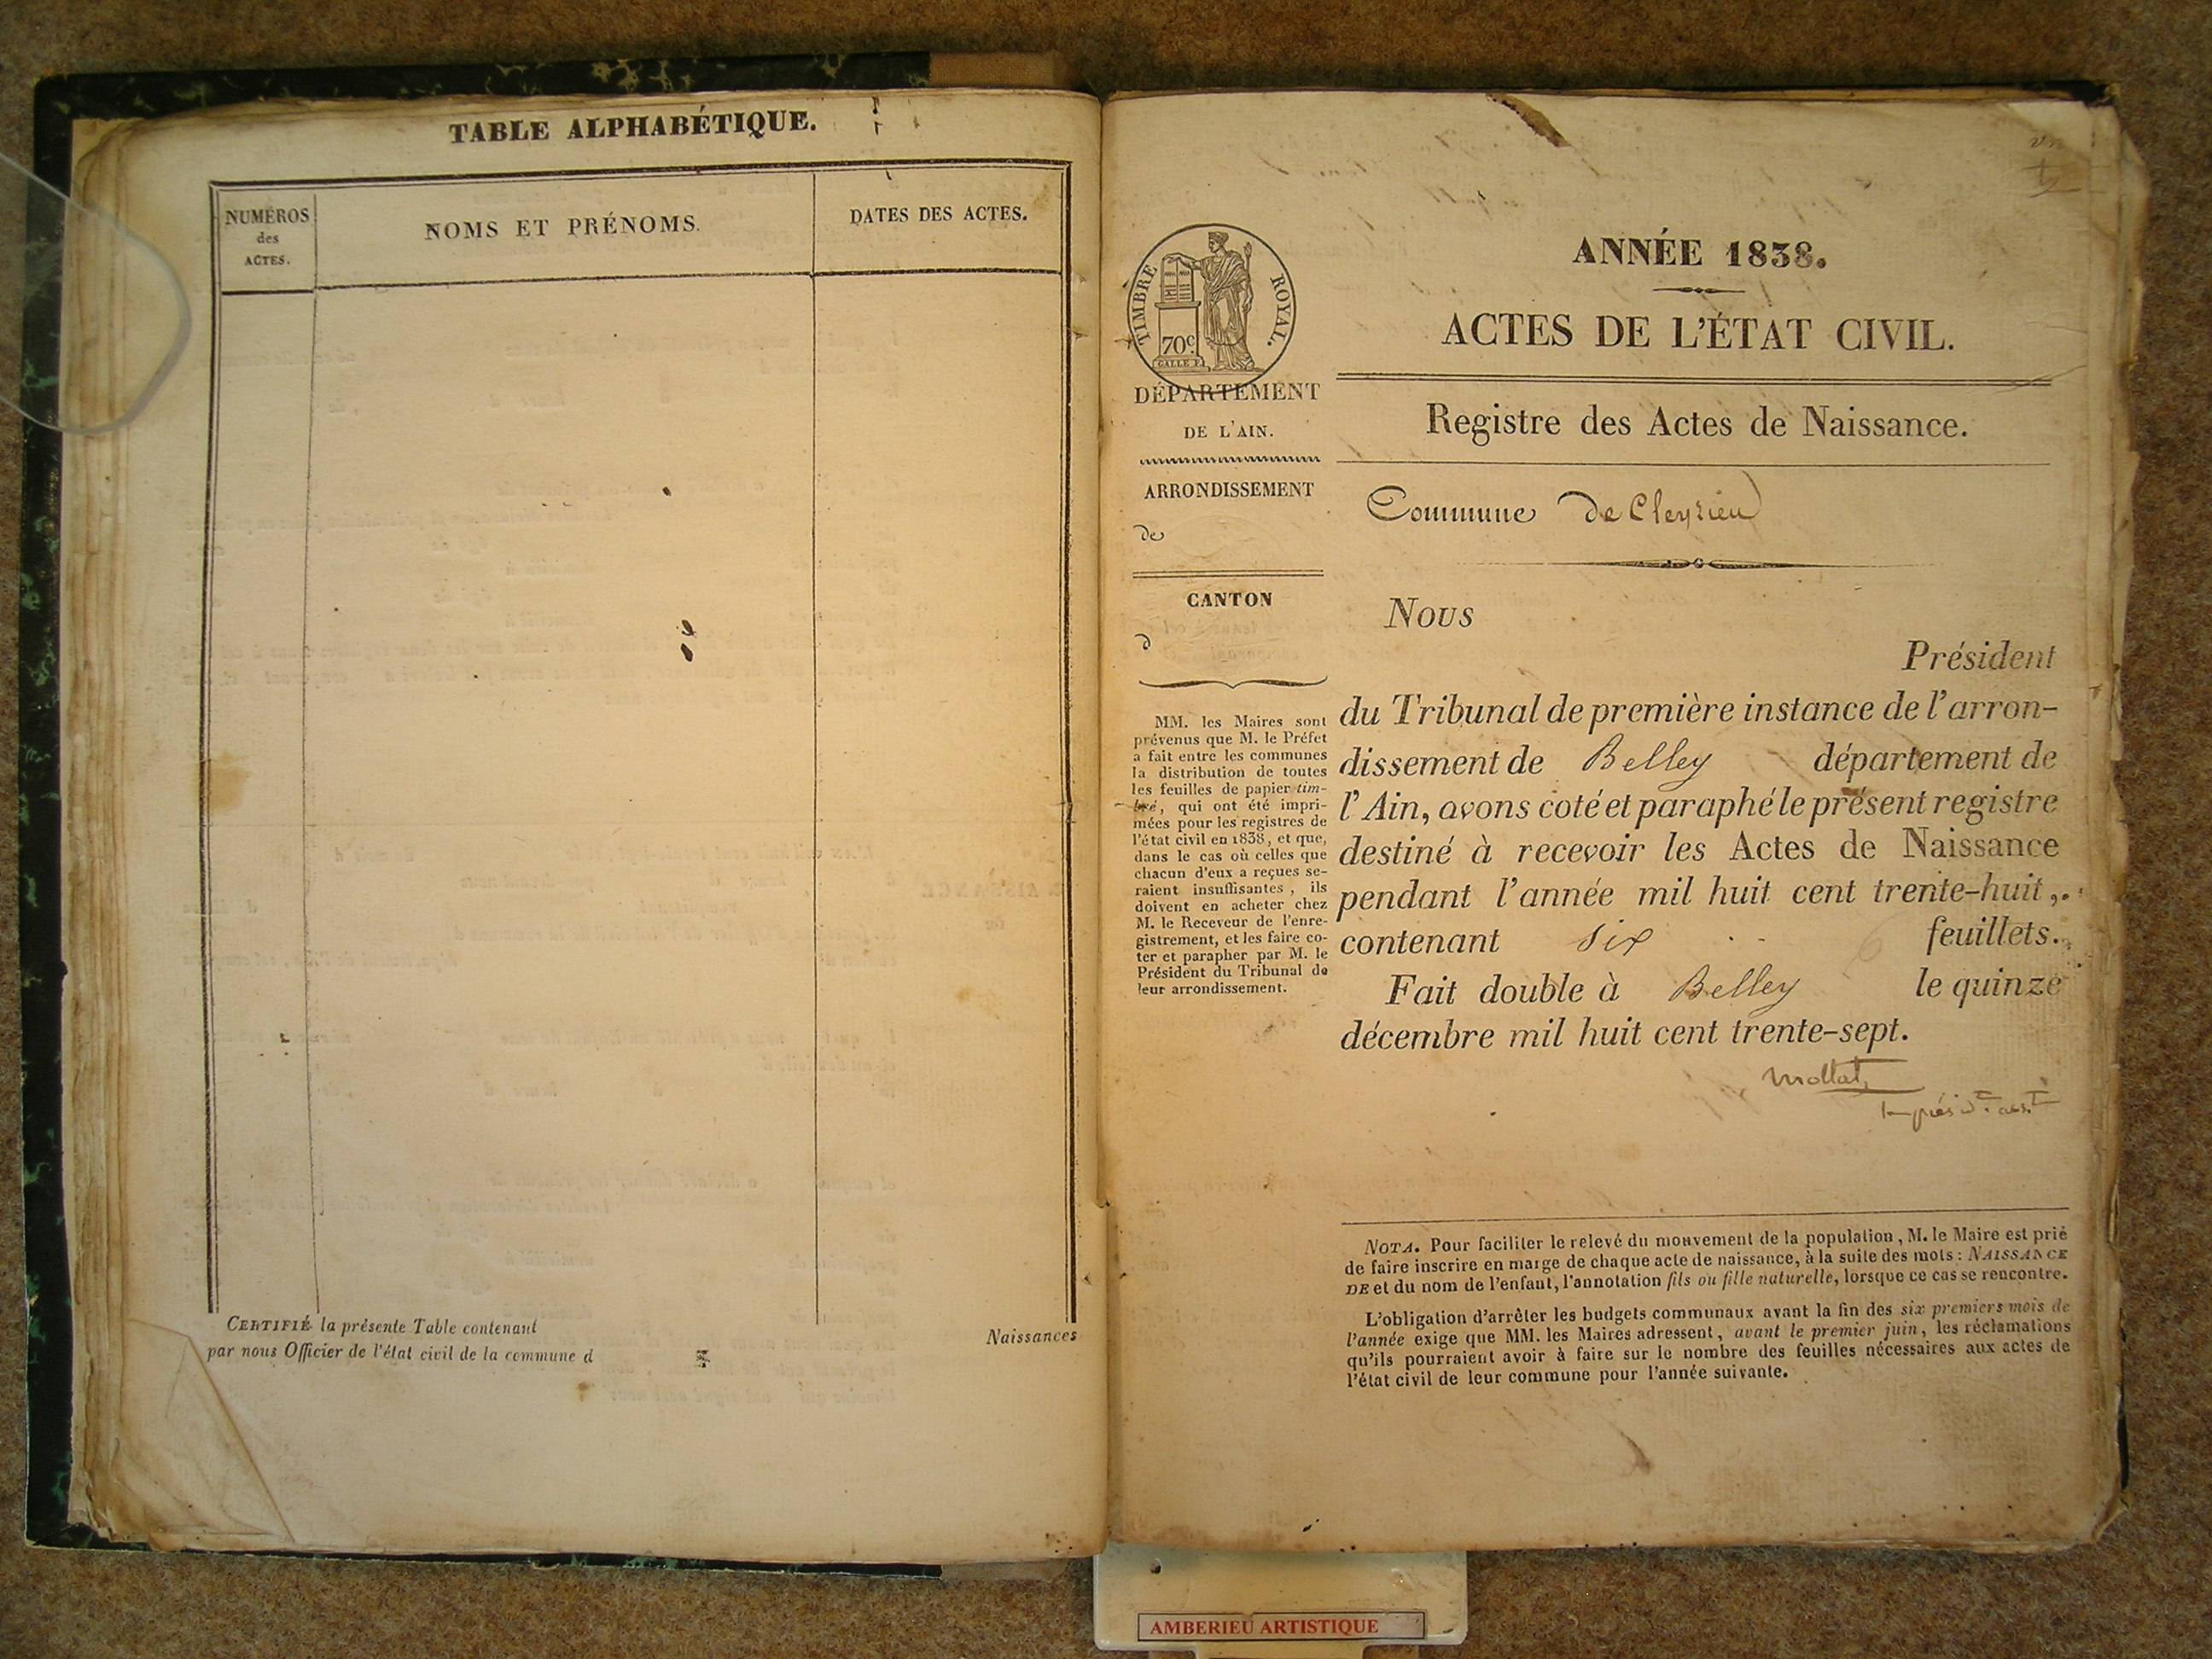 TABLE ALPHABÉTIQUE.
NUMÉROS
des
ACTES.
NOMS ET PRÉNOMS.
DATES DES ACTES.
CERTIFIÉ la présente Table contenant
Naissances
par nous Officier de l'état civil de la commune d
TIMBRE ROYAL.
70c.
DÉPARTEMENT
DE L'AIN.
ARRONDISSEMENT
de
CANTON
d
MM. les Maires sont
prévenus que M. le Préfet
a fait entre les communes
la distribution de toutes
les feuilles de papier tim-
bré, qui ont été impri-
mées pour les registres de
l'état civil en 1838, et que,
dans le cas où celles que
chacun d'eux a reçues se-
raient insuffisantes, ils
doivent en acheter chez
M. le Receveur de l'enre-
gistrement, et les faire co-
ter et parapher par M. le
Président du Tribunal de
leur arrondissement.
ANNÉE 1838.
ACTES DE L'ÉTAT CIVIL.
Registre des Actes de Naissance.
Commune de Cleyzieu
Nous
Président
du Tribunal de première instance de l'arron-
dissement de Belley département de
l'Ain, avons coté et paraphé le présent registre
destiné à recevoir les Actes de Naissance
pendant l'année mil huit cent trente-huit,
contenant six feuillets.
Fait double à Belley le quinze
décembre mil huit cent trente-sept.
Mollat
NOTA. Pour faciliter le relevé du mouvement de la population, M. le Maire est prié
de faire inscrire en marge de chaque acte de naissance, à la suite des mots : NAISSANCE
DE et du nom de l'enfant, l'annotation fils ou fille naturelle, lorsque ce cas se rencontre.
L'obligation d'arrêter les budgets communaux avant la fin des six premiers mois de
l'année exige que MM. les Maires adressent, avant le premier juin, les réclamations
qu'ils pourraient avoir à faire sur le nombre des feuilles nécessaires aux actes de
l'état civil de leur commune pour l'année suivante.
AMBERIEU ARTISTIQUE